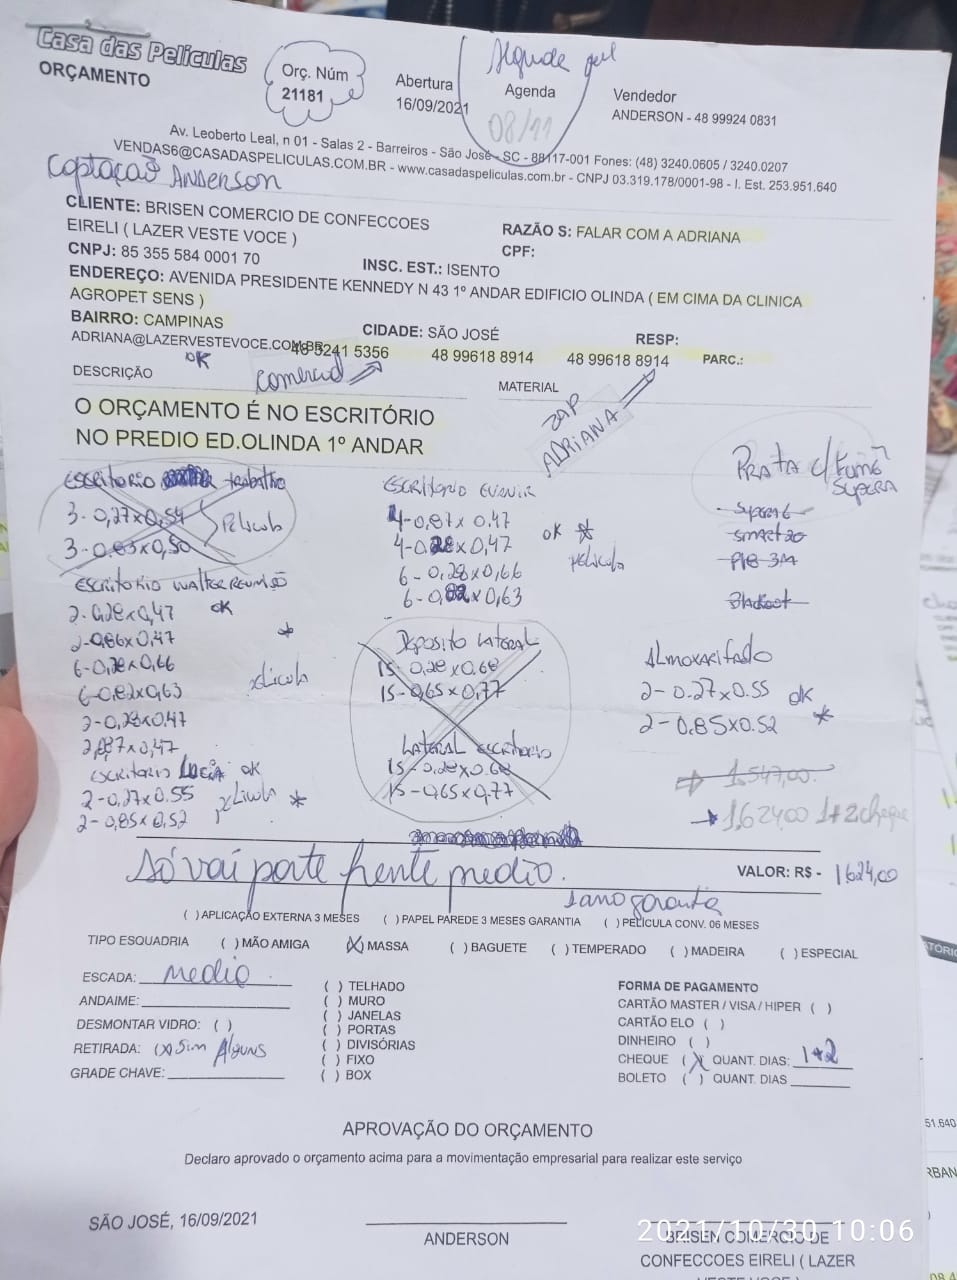 Casa das Películas
ORÇAMENTO
Orç. Núm
21181
Abertura
16/09/2021
Agenda
08/11
Vendedor
ANDERSON - 48 99924 0831
Av. Leoberto Leal, n 01 - Salas 2 - Barreiros - São José - SC - 88117-001 Fones: (48) 3240.0605 / 3240.0207
VENDAS6@CASADASPELICULAS.COM.BR - www.casadaspeliculas.com.br - CNPJ 03.319.178/0001-98 - I. Est. 253.951.640
Captação Anderson
CLIENTE: BRISEN COMERCIO DE CONFECCOES
EIRELI ( LAZER VESTE VOCE )
RAZÃO S: FALAR COM A ADRIANA
CNPJ: 85 355 584 0001 70
INSC. EST.: ISENTO
CPF:
ENDEREÇO: AVENIDA PRESIDENTE KENNEDY N 43 1º ANDAR EDIFICIO OLINDA ( EM CIMA DA CLINICA
AGROPET SENS )
BAIRRO: CAMPINAS
CIDADE: SÃO JOSÉ
RESP:
ADRIANA@LAZERVESTEVOCE.COM.BR
48 3241 5356
48 99618 8914
48 99618 8914
PARC.:
OK
comercial
ZAP
ADRIANA
DESCRIÇÃO
MATERIAL
O ORÇAMENTO É NO ESCRITÓRIO
NO PREDIO ED.OLINDA 1º ANDAR
PRATA c/ Fumê
SUPERA
Escritorio trabalho
3-0,27x0,54
3-0,83x0,50
Pelicula
Escritorio Walter Reunião
2-0,28x0,47 OK
2-0,86x0,47
6-0,28x0,66
6-0,82x0,63
pelicula
2-0,28x0,47
2,087x0,47
Escritorio Lucia OK
2-0,27x0.55
2-0,85x0,52
pelicula
ESCRITORIO
4-0,87x0.47
4-0,28x0,47
OK
pelicula
6-0,28x0,66
6-0,82x0,63
Deposito Lateral
15-0,28x0.68
15-0,65x0,77
Lateral Escritorio
15-0,28x0.68
15-0,65x0,77
Smart 20
P18 3M
Blackout
Almoxarifado
2-0.27x0.55 OK
2-0.85x0.52
1.547,00
1,624,00 1+2 cheque
Só vai parte frente medio.
VALOR: R$ - 1624,00
garantia
( ) APLICAÇÃO EXTERNA 3 MESES ( ) PAPEL PAREDE 3 MESES GARANTIA ( ) PELÍCULA CONV. 06 MESES
TIPO ESQUADRIA ( ) MÃO AMIGA (X) MASSA ( ) BAGUETE ( ) TEMPERADO ( ) MADEIRA ( ) ESPECIAL
ESCADA: Medio
ANDAIME:
DESMONTAR VIDRO: ( )
RETIRADA: (x) Sim Alguns
GRADE CHAVE:
( ) TELHADO
( ) MURO
( ) JANELAS
( ) PORTAS
( ) DIVISÓRIAS
( ) FIXO
( ) BOX
FORMA DE PAGAMENTO
CARTÃO MASTER / VISA / HIPER ( )
CARTÃO ELO ( )
DINHEIRO ( )
CHEQUE (X) QUANT. DIAS: 1+2
BOLETO ( ) QUANT. DIAS
APROVAÇÃO DO ORÇAMENTO
Declaro aprovado o orçamento acima para a movimentação empresarial para realizar este serviço
SÃO JOSÉ, 16/09/2021
ANDERSON
BRISEN COMERCIO DE
CONFECCOES EIRELI ( LAZER
VESTE VOCE )
2021/10/30 10:06